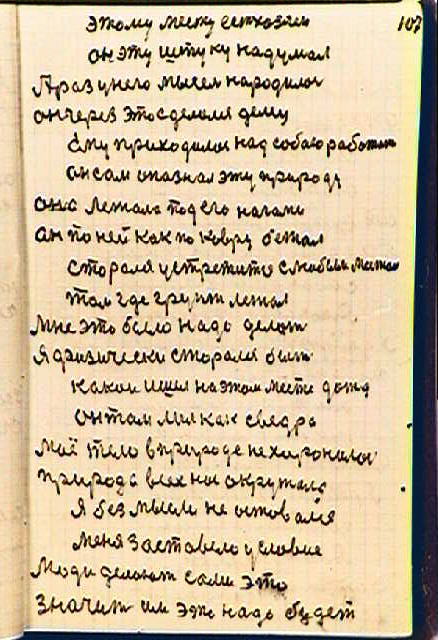 107
этому месту есть хозяин
он эту штуку надумал
А раз у него мысел народилос
он через это сделался дему
Ему приходилос над собаю работат
он сам опазнал эту природу
она лежала под его нагами
ан по ней как по ковру бежал
старался устрежитс с любым
там где грунт лежал
Мне это было надо делат
Я физически старался быт
какои ишел на этом месте дожд
он там лил как сведра
Моё тело в природе не харонилос
природа всех нас окружала
Я без мысли не оставался
меня заставело условие
Люди делают сами это
значит им это надо будет